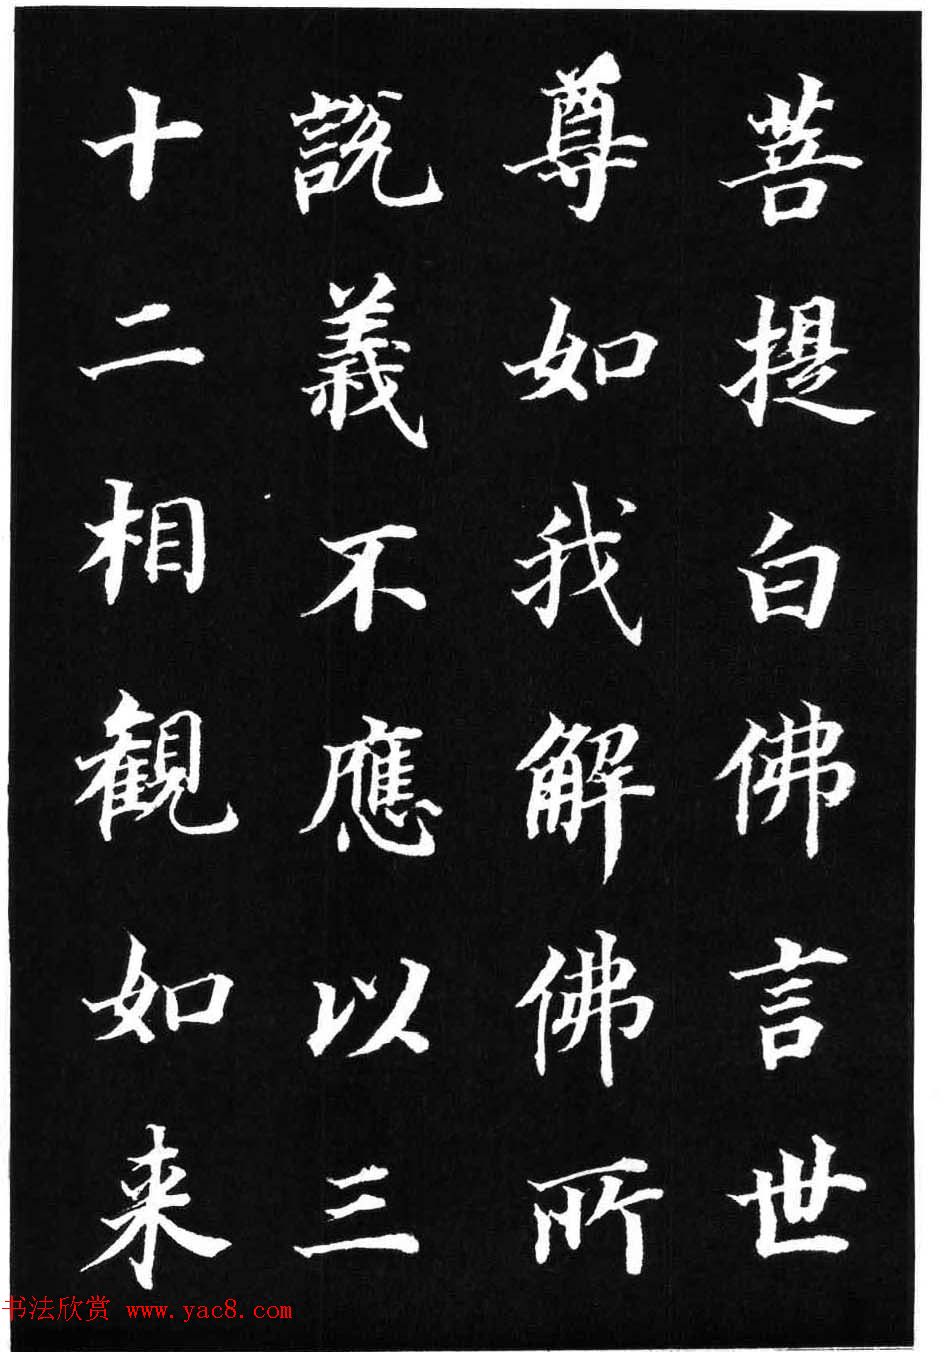 菩提白佛言世
尊如我解佛所
說義不應以三
十二相觀如来
书法欣赏 www.yac8.com